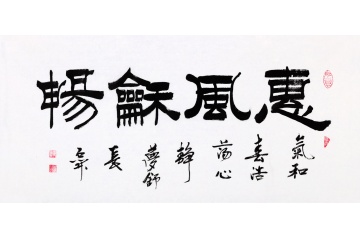 惠風龢暢
氣和
春浩
蕩心
靜
夢飾
長